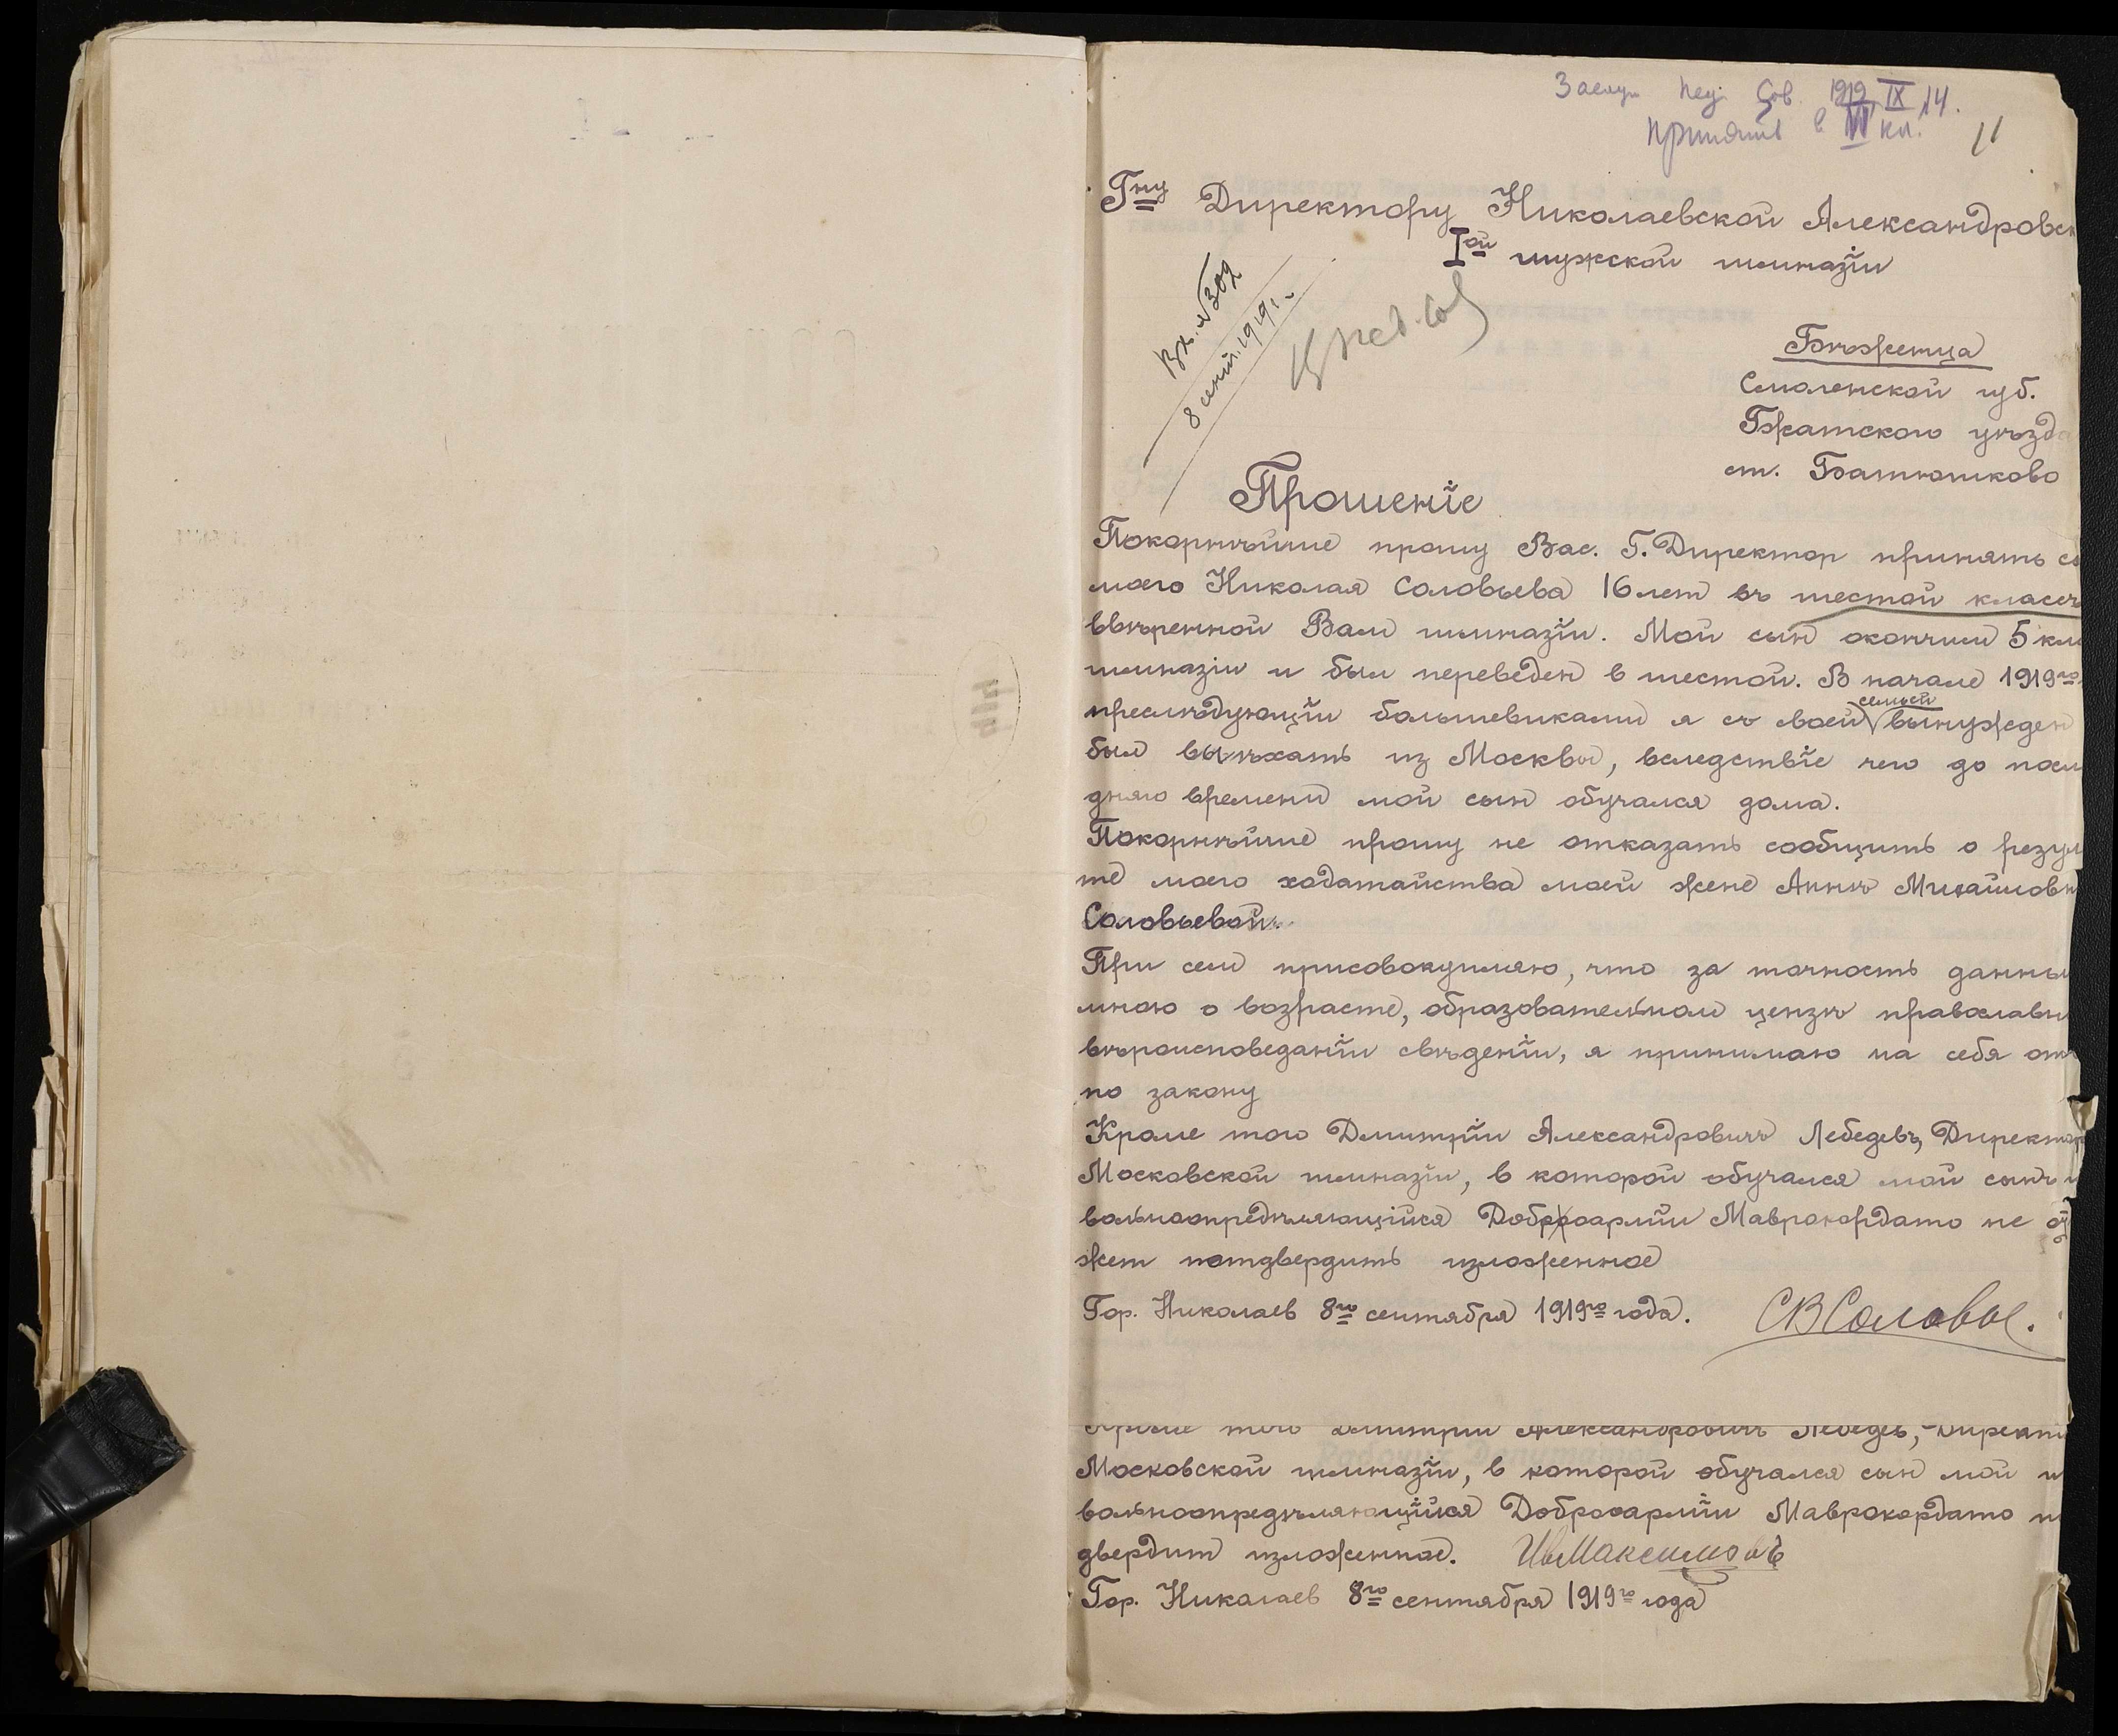 Заслуш. пед. Сов. 1919 IX 14.
Принять в VI кл.
11
Гну Директору Николаевской Александровск
Iой мужской гимназіи
Вх. №302
8 сент. 1919 г.
Бѣженца
Смоленской губ.
Гжатского уѣзда
ст. Батюшково
Прошеніе
Покорнѣйше прошу Вас. Г. Директор принять с
моего Николая Соловьева 16 лет въ шестой классъ
ввѣренной Вам гимназіи. Мой сын окончил 5 кл
гимназіи и был переведен в шестой. В начале 1919го
преслѣдующіи большевиками я съ своей семьей вынужден
был выѣхать из Москвы, вследствіе чего до посл
дняго времени мой сын обучался дома.
Покорнѣйше прошу не отказать сообщить о резул
те моего ходатайства моей жене Аннѣ Михайловн
Соловьевой.
При сем присовокупляю, что за точность данны
мною о возрасте, образовательном цензѣ православн
вѣроисповеданіи свѣденіи, я принимаю на себя отв
по закону
Кроме того Дмитріи Александровичъ Лебедевъ, Директор
Московской гимназіи, в которой обучался мой сынъ и
вольноопредѣляющійся Доброарміи Маврокордато не от
жет потдвердить изложенное
Гор. Николаев 8го сентября 1919го года. СВ Соловье.
Кроме того Дмитріи Александровичъ Лебедев, Директ
Московской гимназіи, в которой обучался сын мой и
вольноопредѣляющійся Доброарміи Маврокордато п
двердит изложенное. Ив Максимовъ
Гор. Николаев 8го сентября 1919го года